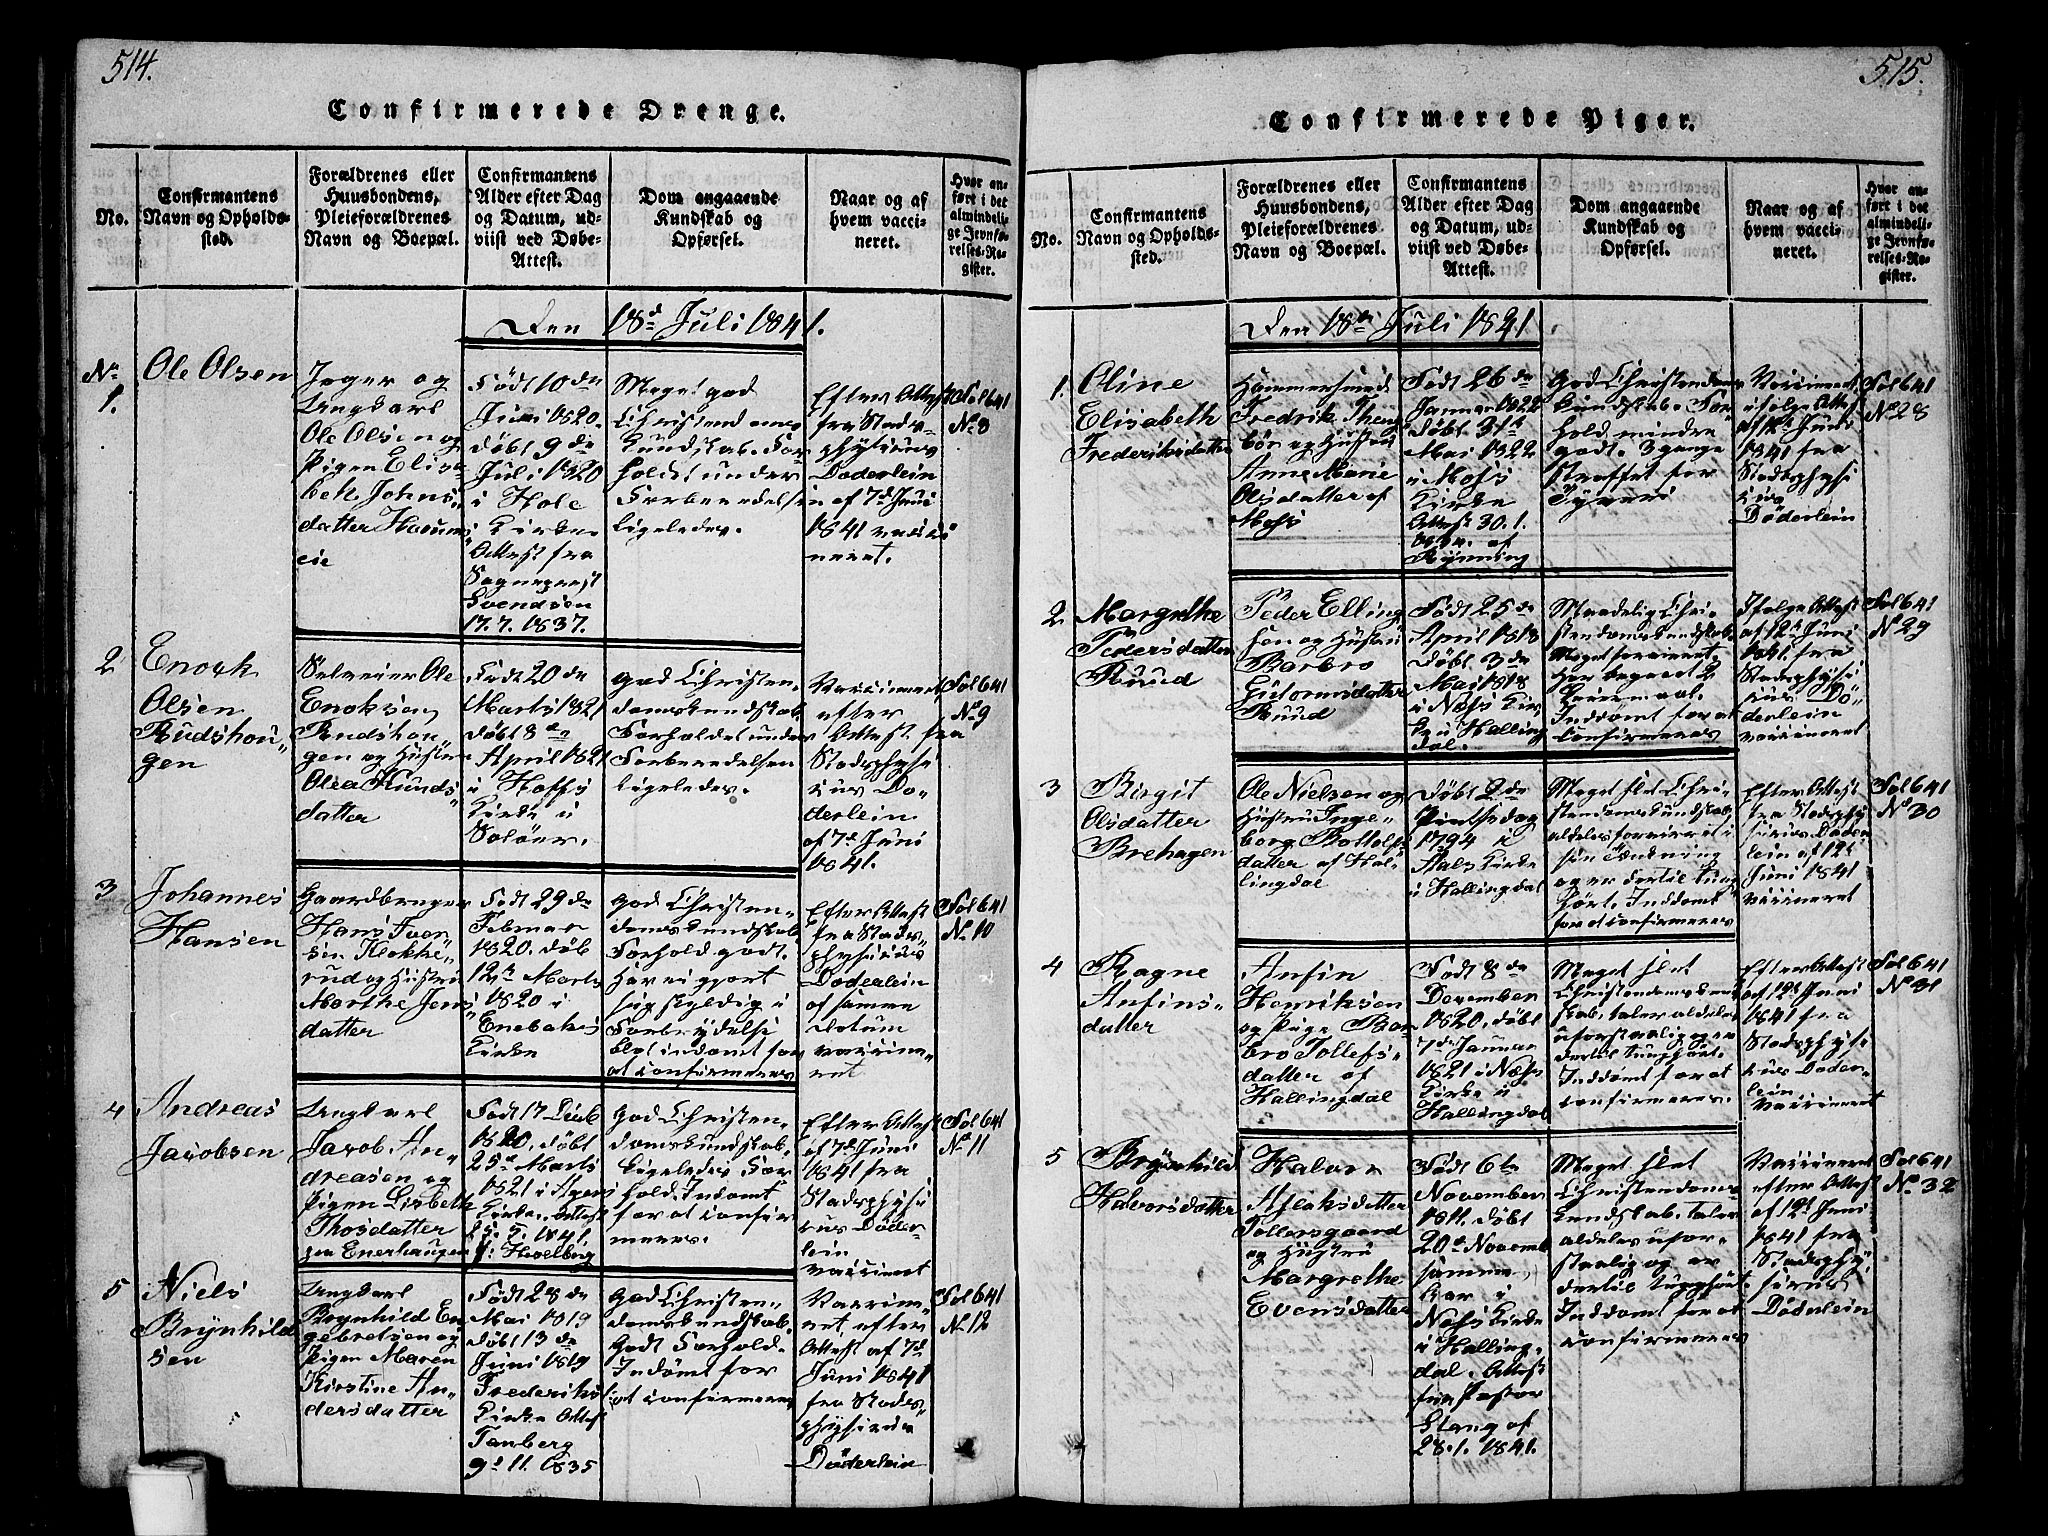 514.
Confirmerede Drenge.
No.
Confirmantens
Navn og Opholds-
sted.
Forældrenes eller
Huusbondens,
Pleieforældrenes
Navn og Boepæl.
Confirmantens
Alder efter Dag
og Datum, ud-
viist ved Døbe-
Attest.
Dom angaaende
Kundskab og
Opførsel.
Naar og af
hvem vacci-
neret.
Hvor an-
ført i det
almindeli-
ge Jevnfø-
relses-Re-
gister.
Den 18d Juli 1841.
No
1.
Ole Olsen
Jeger og
Ungkarl
Ole Olsen og
Pigen Elisa-
beth Johns
datter
eie
Født 10de
Juni 1820.
døbt 9de
Juli 1820
i Hole
Kirke
Attest fra
Sognepræst
Svendsen
17.7.1837.
Meget god
Christendoms
Kundskab. For
holdt under
Forberedelsen
ligeledes.
Efter Attest
fra Stads-
physicus
Døderlein
af 7d Juni
1841 vacci
neret.
Fol 641
No 8
2
Enock
Olsen
Rudshou-
gen
Selveier Ole
Enoksen
Rudshou
gen og Hustru
Olea Hunds-
datter
Født 20de
Marts 1821
døbt 8de
April 1821
i Hoffs
Kirke i
Soløer.
God Christen-
domskundskab
Forholdet under
Forberedelsen
ligeledes.
Vaccineret
efter
Attest fra
Stadsphysi
cus Dø-
derlein
af 7d Juni
1841.
Fol 641
No 9
3
Johannes
Hansen
Gaardbruger
Hans Iver
sen Klokke-
rud og Hustru
Marthe Jens
datter
Født 29de
Februar
1820. døb
12te Marts
1820 i
Enebaks
Kirke
God Christen-
domskundskab
Forhold godt.
Har ei gjort
sig skyldig i
Forbrydelse
Blev indømt for
at confirmeres
Efter Attest
fra Stads-
physicus
Døderlein
af samme
Datum
vaccine-
ret
Fol 641
No 10
4
Andreas
Jacobsen
Ungkarl
Jacob An-
dreasen og
Pigen Lisbeth
Thosdatter
paa Enerhaugen
Født 17 Decb
1820, døbt
25de Marts
1821 i Agers
Kirke. Attest
5. 1841.
God Christen-
domskundskab.
Ligeledes For
hold. Indømt
for at confir
meres.
Efter Attest
af 7d Juni
1841 fra
Stadsphysi
cus Døder-
lein
vaccineret
Fol 641
No 11
5
Niels
Brynhild
sen
Ungkarl
Brynhild En
gebretsen og
Pigen Maren
Kirstine An-
dersdatter
Født 28de
Mai 1819
døbt 13de
Juni 1819
Frederiks
Kirke Attest
Tanberg
9d 11. 1835
God Christen-
domskundskab.
Godt Forhold.
Indømt for
at confirmeres
Vaccine-
ret, efter
Attest af 7d
Juni 1841
fra Stads-
physicus
Døderlein
Fol 641
No 12
515.
Confirmerede Piger.
No.
Confirmantens
Navn og Opholds-
sted.
Forældrenes eller
Huusbondens,
Pleieforældrenes
Navn og Boepæl.
Confirmantens
Alder efter Dag
og Datum, ud-
viist ved Døbe-
Attest.
Dom angaaende
Kundskab og
Opførsel.
Naar og af
hvem vacci-
neret.
Hvor an-
ført i det
almindeli-
ge Jevnfø-
relses-Re-
gister.
Den 18de Juli 1841
1.
Oline
Elisabeth
Frederiksdatter
Hammersmed
Fredrik
og Hustru
Anne Marie
Olsdatter af
Moss
Født 26de
Januar 1822
døbt 31te
Mai 1822
i Moss
Kirke
Attest 30. 1.
af
Rynning
God Christendoms
kundskab. For
hold mindre
godt. 3 gange
straffet for
Tyveri
Vaccineret
ifølge Attest
af 12te Juni
1841 fra
Stadsphysi
cus
Døderlein
Fol 641
No 28
2.
Margrethe
Pedersdatter
Ruud
Peder Elling
sen og Hustru
Barbro
Gutormsdatter
Ruud
Født 25de
April 1818
Døbt 3de
Mai 1818
i Næss Kir
ke i Halling
dal.
Maadelig Chri-
stendomskundskab
Meget forvirret.
Har begaaet 2
Leiermaal.
Inddømt for at
confirmeres
Ifølge Attest
af 12te Juni
1841 fra
Stadsphysi
cus Dø-
derlein
vaccineret
Fol 641
No 29
3
Birgit
Olsdatter
Brehagen
Ole Nielsen og
Hustru Inge-
borg Bottolfs
datter af Hal-
lingdal
Døbt 2de
Pintsedag
1794 i
Aals Kirke
i Hallingdal
Meget slet Chri-
stendomskundskab
aldeles forvirret i
sin Tænkning
og er dertil tung
hørt. Inddømt
for at confirmeres
Efter Attest
fra Stadsphy
sicus Døder
lein af 12te
Juni 1841
vaccineret
Fol 641
No 30
4
Ragne
Anfins-
datter
Anfin
Henriksen
og Pige Bar
bro Tollefs-
datter af
Hallingdal
Født 8de
December
1820, døbt
7de Januar
1821 i Næss
Kirke i
Hallingdal
Meget slet
Christendomskund
skab, taler aldeles
uforstaalig og er
dertil tunghørt.
Inddømt for at
confirmeres.
Efter Attest
af 12te Juni
1841 fra
Stadsphysi
cus Døder-
lein
vaccineret
Fol 641
No 31
5
Brynhild
Halvorsdatter
Halvor
Aslaksdatter
Tollersgaard
og Hustru
Margrethe
Evensdatter
Født 6te
November
1811. døbt
20de Novemb
samme
Aar i
Næss Kirke
i Halling-
dal. Attest
fra Pastor
Stang af
28.1.1841.
Meget slet
Christendoms
kundskab, taler
aldeles ufor-
staalig og er
dertil tunghørt.
Inddømt for at
confirmeres
Vaccineret
efter Attest
af 12te Juni
1841 fra
Stadsphy-
sicus
Døderlein
Fol 641
No 32